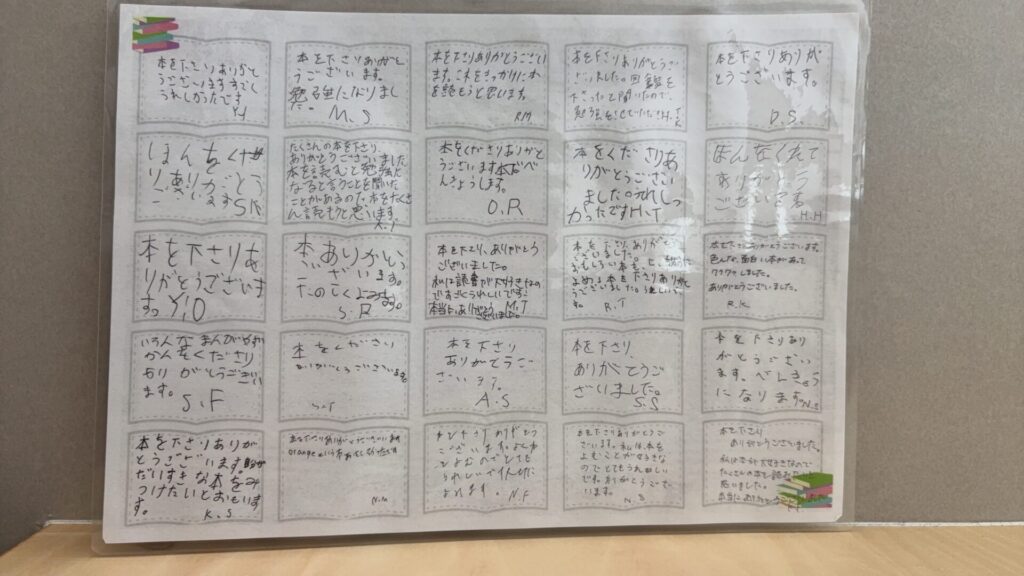 本を下さりありがと
うございますすごく
うれしかったです
Y.H
本を下さりありがと
うございます。
勉強になりまし
た。M.S
本を下さりありがとうござい
ます。これをきっかけに本
を読もうと思います。
R.M
本を下さりありがとうご
ざいました。図鑑を
下さったと聞いたので、
勉強を
本を下さりありが
とうございます。
D.S.
ほんをくださ
りありがとう
ございます
S.K
たくさんの本を下さり、
ありがとうございました
本を読むと勉強に
なると言うことを聞いた
ことがあるので、本をたくさ
ん読もうと思います。
本をくださりありがと
うございます本でべ
んきょうします。
O.R
本をくださりあ
りがとうござい
ましたうれし
かったですH.T
ほんをくれて
ありがとう
ございます
H.H
本を下さりあ
りがとうございま
すY.O
本ありがとう
ございます。
たのしくよみます。
S.R
本を下さり、ありがとう
ございました。
私は読書が大好きなの
ですごくうれしいです。
本当にありがとう
ございました。M.T
本を下さりありがとうご
ざいました。
R.T
本を下さりありがとうございます。
色んな、面白い本があって
ワクワクしました。
ありがとうございました。
R.K
いろんなまんがやず
かんをくださり
ありがとうござい
ます。
S.F
本をくださり
ありがとうございます
本を下さり
ありがとうご
ざいます。
A.S
本を下さり、
ありがとうご
ざいました。
S.S
本を下さりあり
がとうござい
ます。べんきょう
になります。N.S
本を下さりありが
とうございます
だいすきな本をみ
つけたいとおもいま
す。K.S
N.M
N.F
本を下さりありがとうご
ざいます。私は本を
よむことが好きな
のでとてもうれしい
です。ありがとうござ
います。
N.S
本を下さり
ありがとうございました。
私は本が大好きなので
たくさんの本を読みたいと
思いました。
本当にありがとう